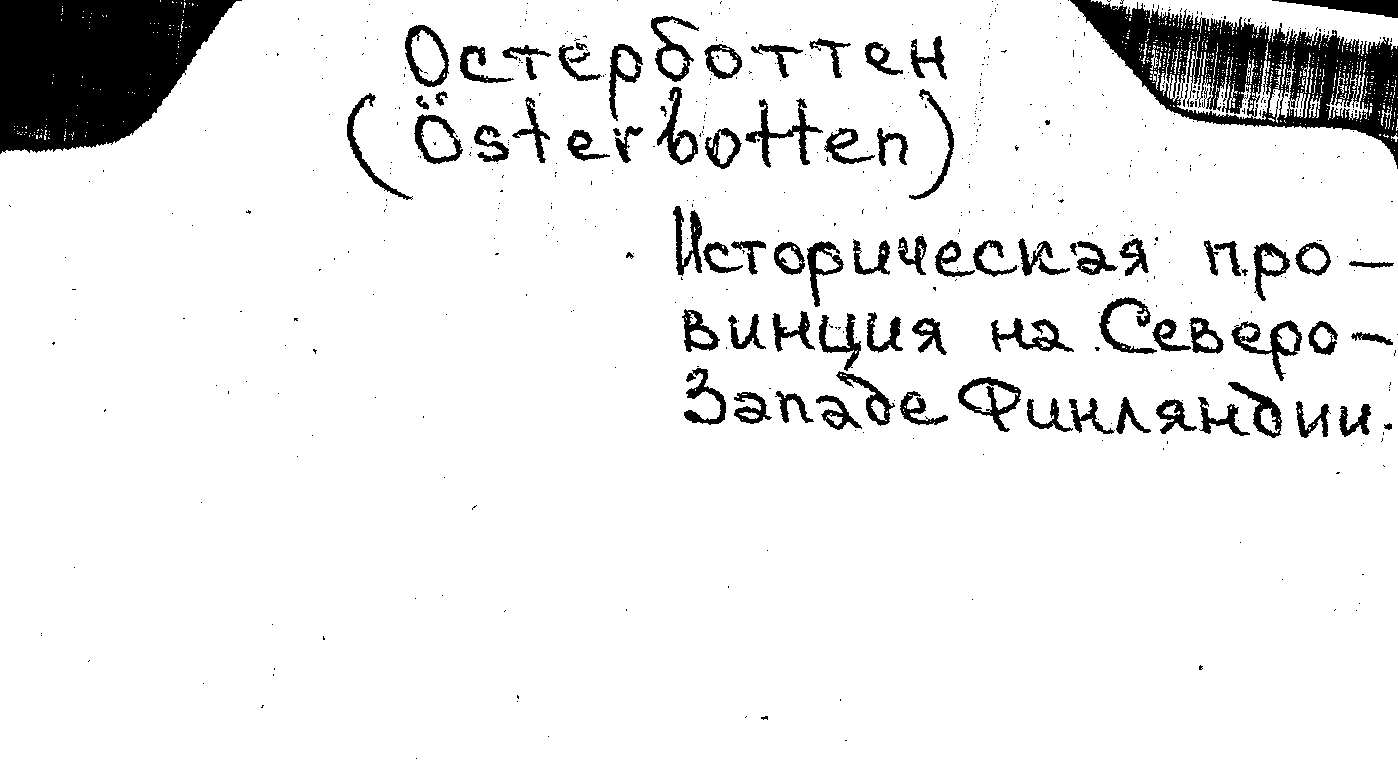 Остерботтен
(Österbotten)
Историческая про-
винция на Северо-
Западе Финляндии.